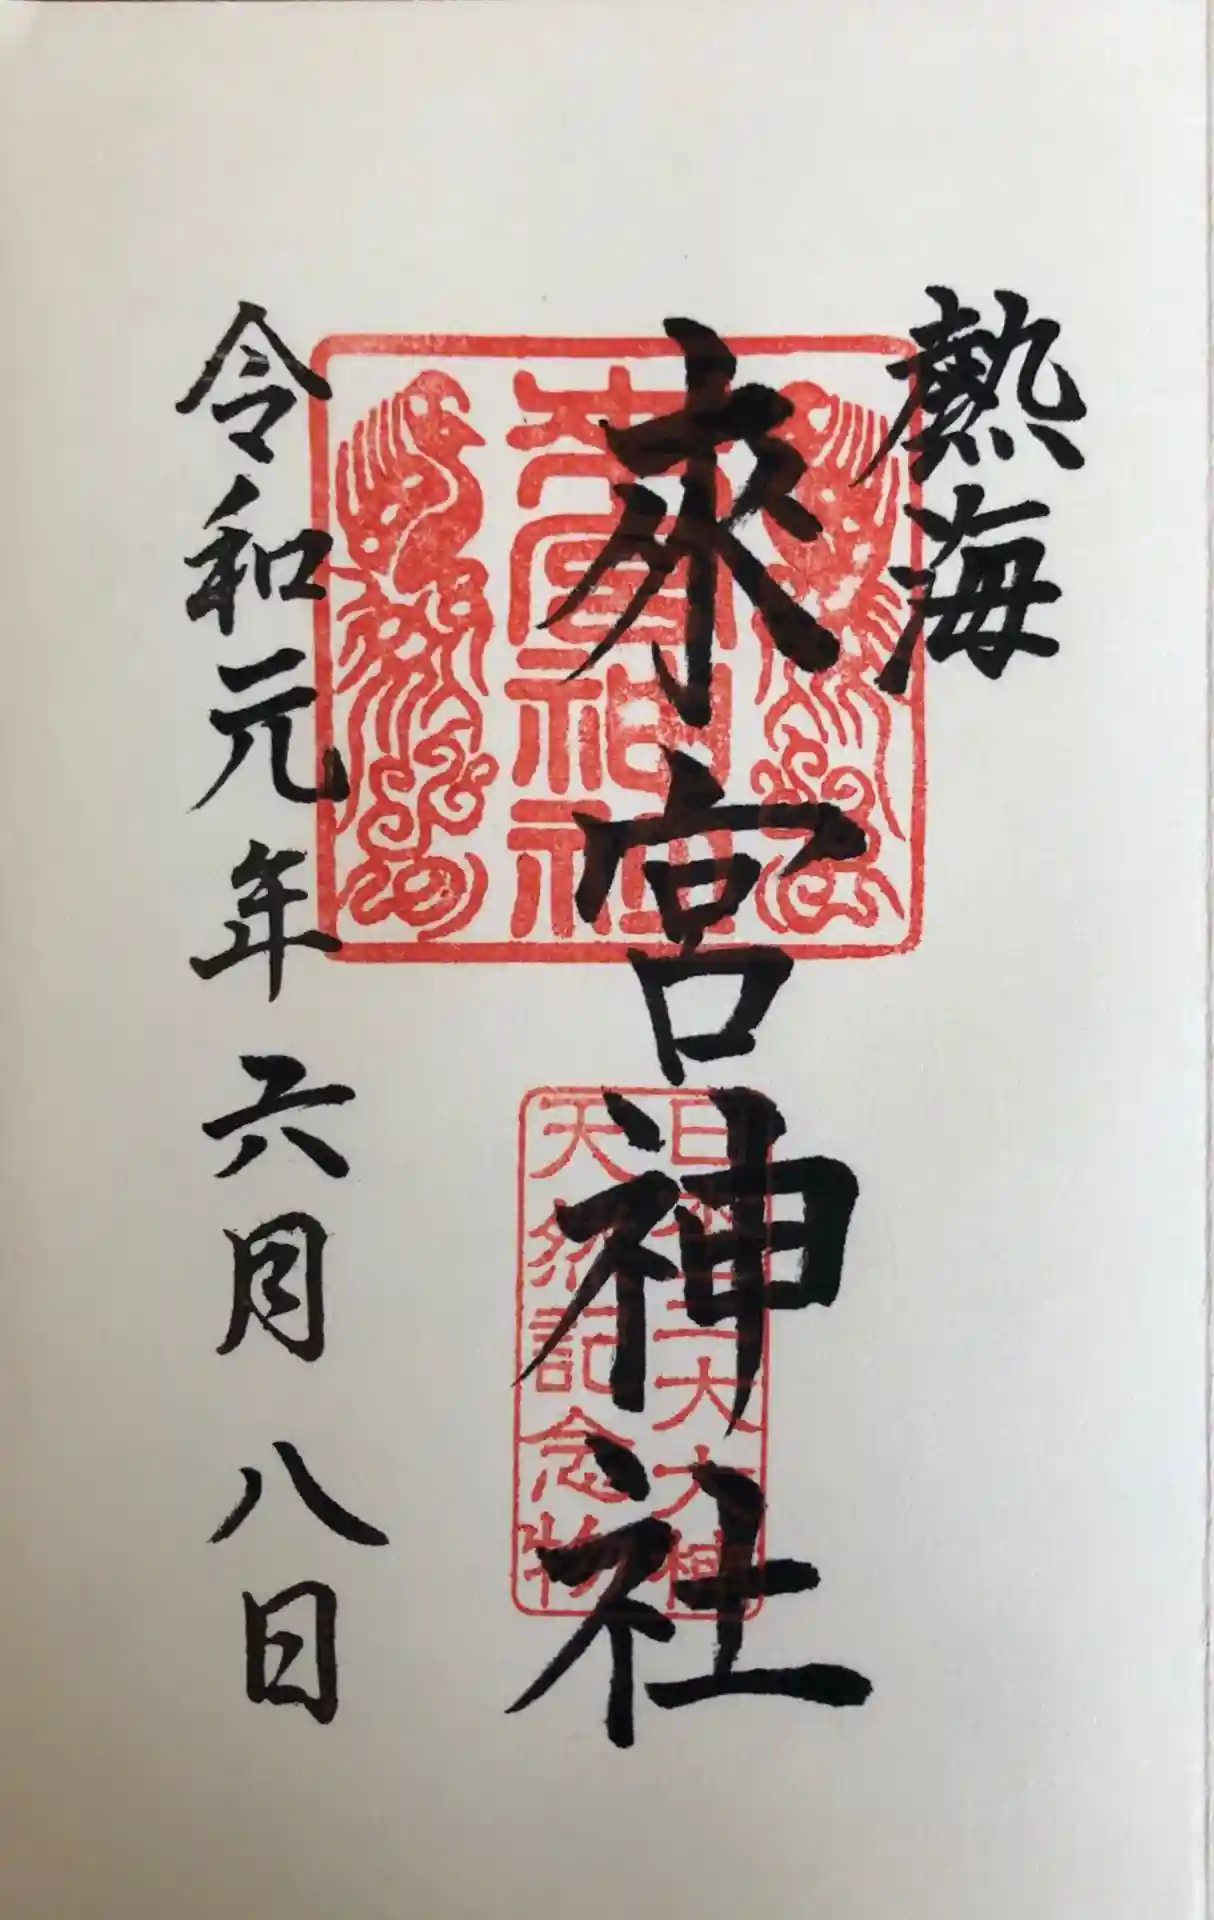 熱海
來宮神社
來宮神社
日本三大大楠
天然記念物
令和元年六月八日